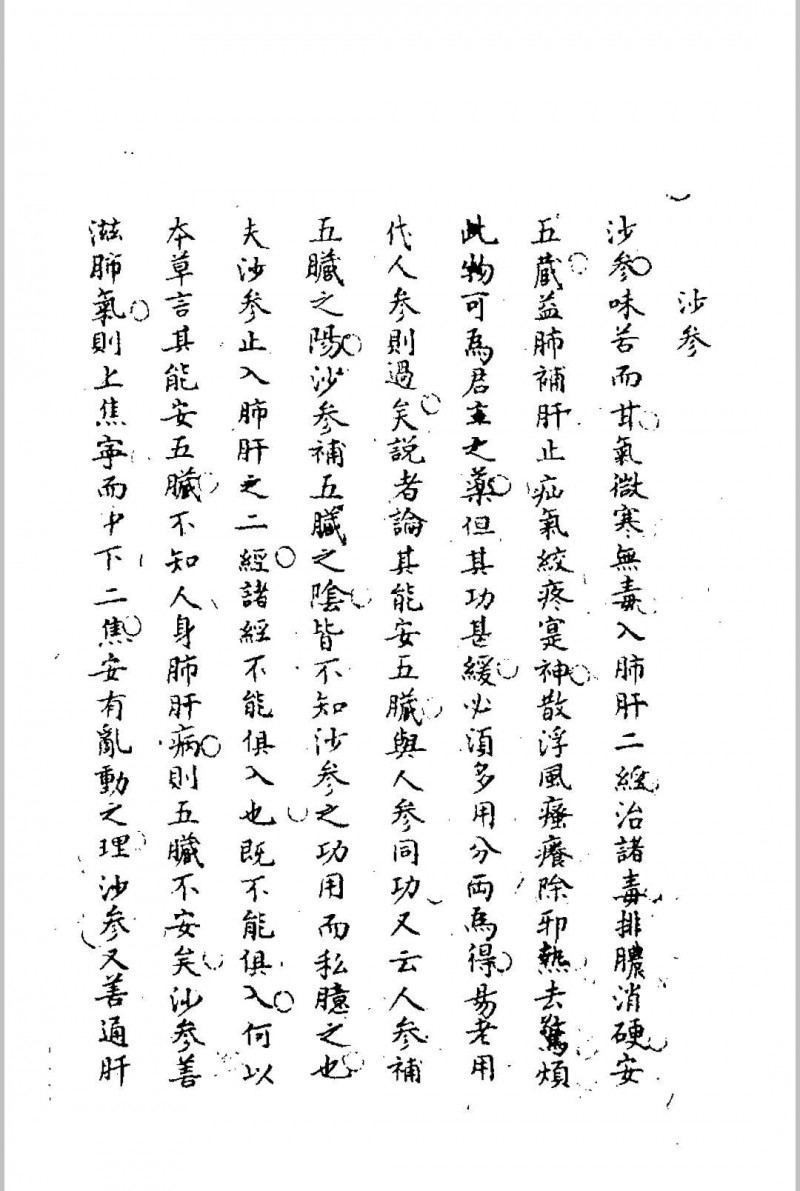 沙参
沙参味苦而甘氣微寒無毒入肺肝二經治諸毒排膿消硬安
五蔵益肺補肝止疝氣絞疼寔神散浮風瘙癢除邪熱去驚煩
此物可為君主之藥但其功甚緩必須多用分両為得易老用
代人参則過矣説者論其能安五臓與人参同功又云人参補
五臓之陽沙参補五臓之陰皆不知沙参之功用而私臆之也
夫沙参止入肺肝之二經諸經不能俱入也既不能俱入何以
本草言其能安五臓不知人身肺肝病則五臓不安矣沙参善
滋肺氣則上焦寧而中下二焦安有亂動之理沙参又善通肝